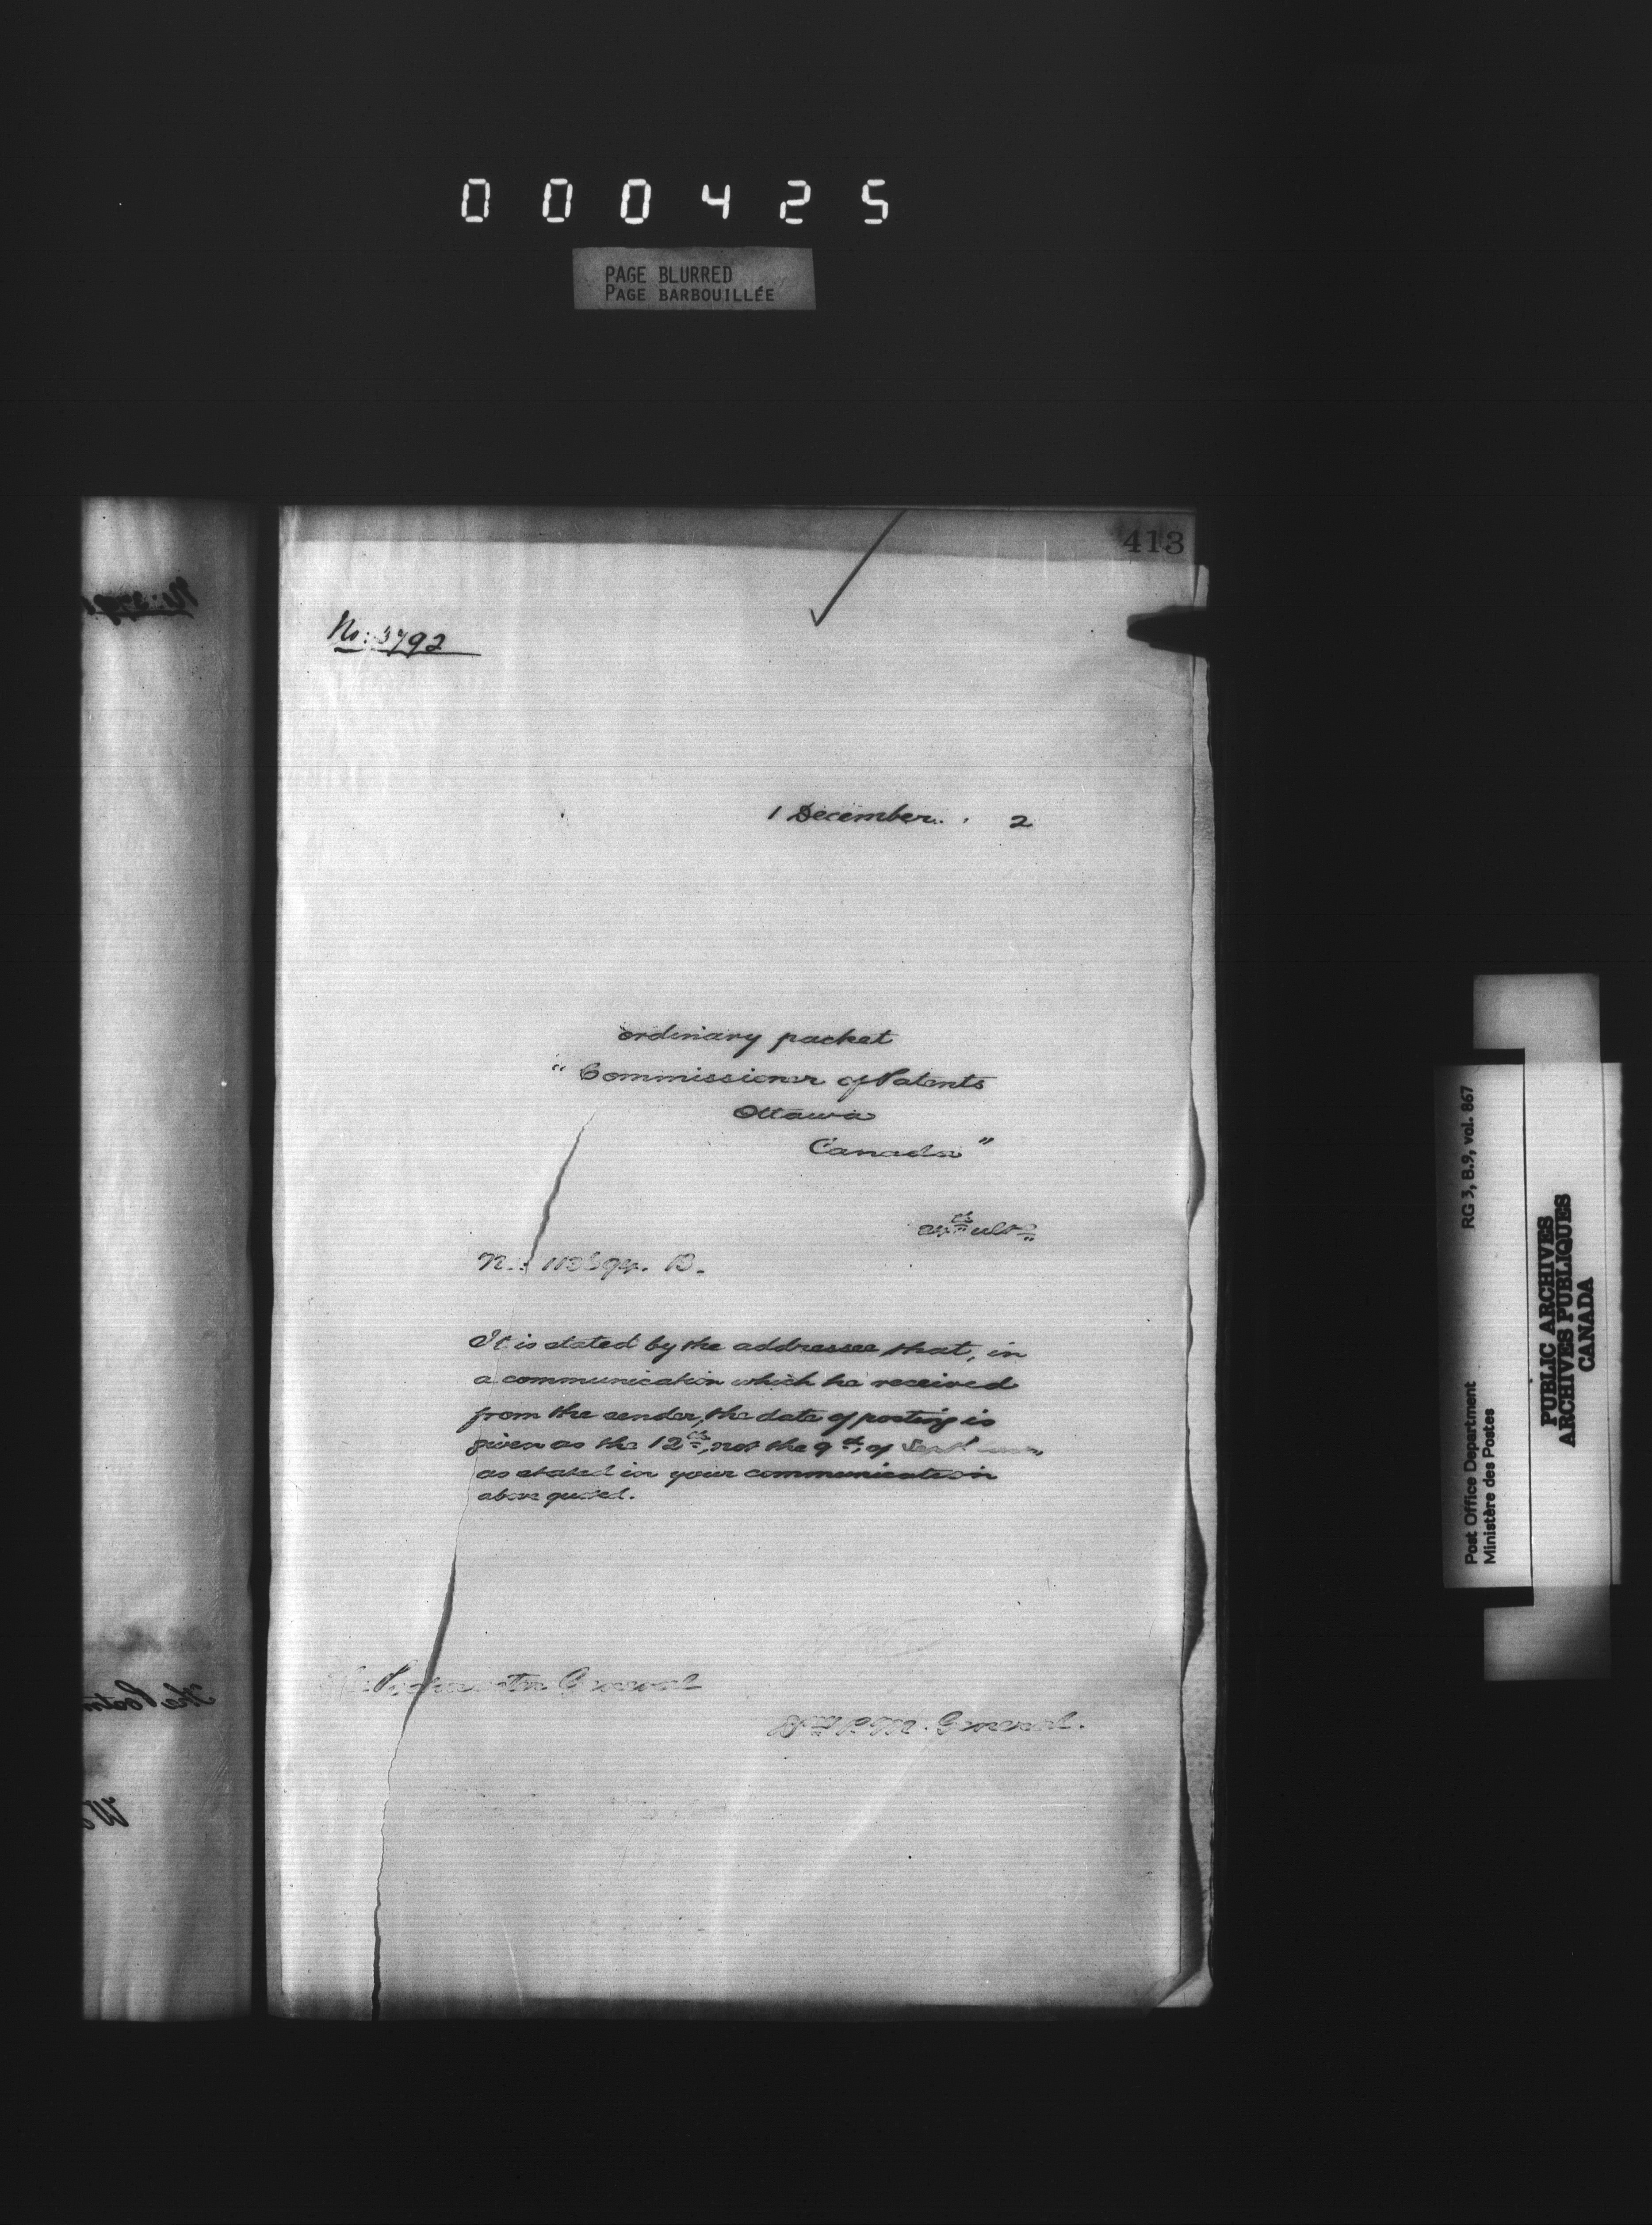 000425
PAGE BLURRED
PAGE BARBOUILLÉE
413
No: 3792
1 December. 2
ordinary packet
"Commissioner of Patents
Ottawa
Canada"
ulto
B.
It is stated by the addressee that, in
a communication which he received
from the sender, the date of posting is
given as the 12th, not the 9th, of Sept
as stated in your communication
above quoted.
The Postmaster General
P.M. General.
RG 3, B.9, vol. 867
Post Office Department
Ministère des Postes
PUBLIC ARCHIVES
ARCHIVES PUBLIQUES
CANADA